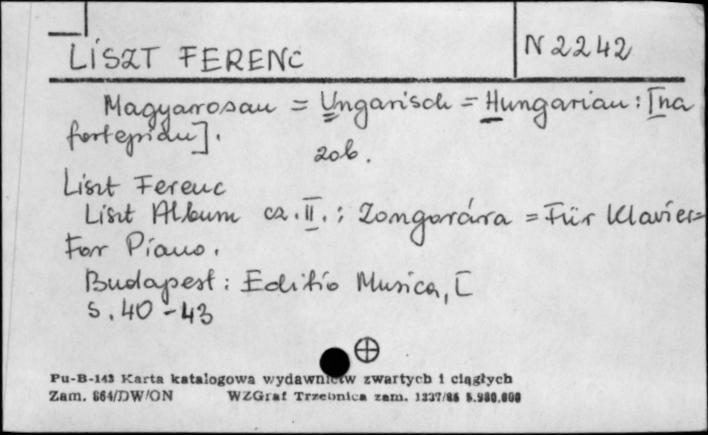 LISZT FERENC
N 2242
Magyarosan = Ungarisch = Hungarian : [na
fortepian].
zob.
Liszt Ferenc
Liszt Album cz. II. : Zongorára = Für Klavier =
For Piano.
Budapest : Editio Musica, [
S. 40 - 43
Pu-B-143 Karta katalogowa wydawnictw zwartych i ciągłych
Zam. 864/DW/ON WZGraf Trzebnica zam. 1237/86 5.980.000